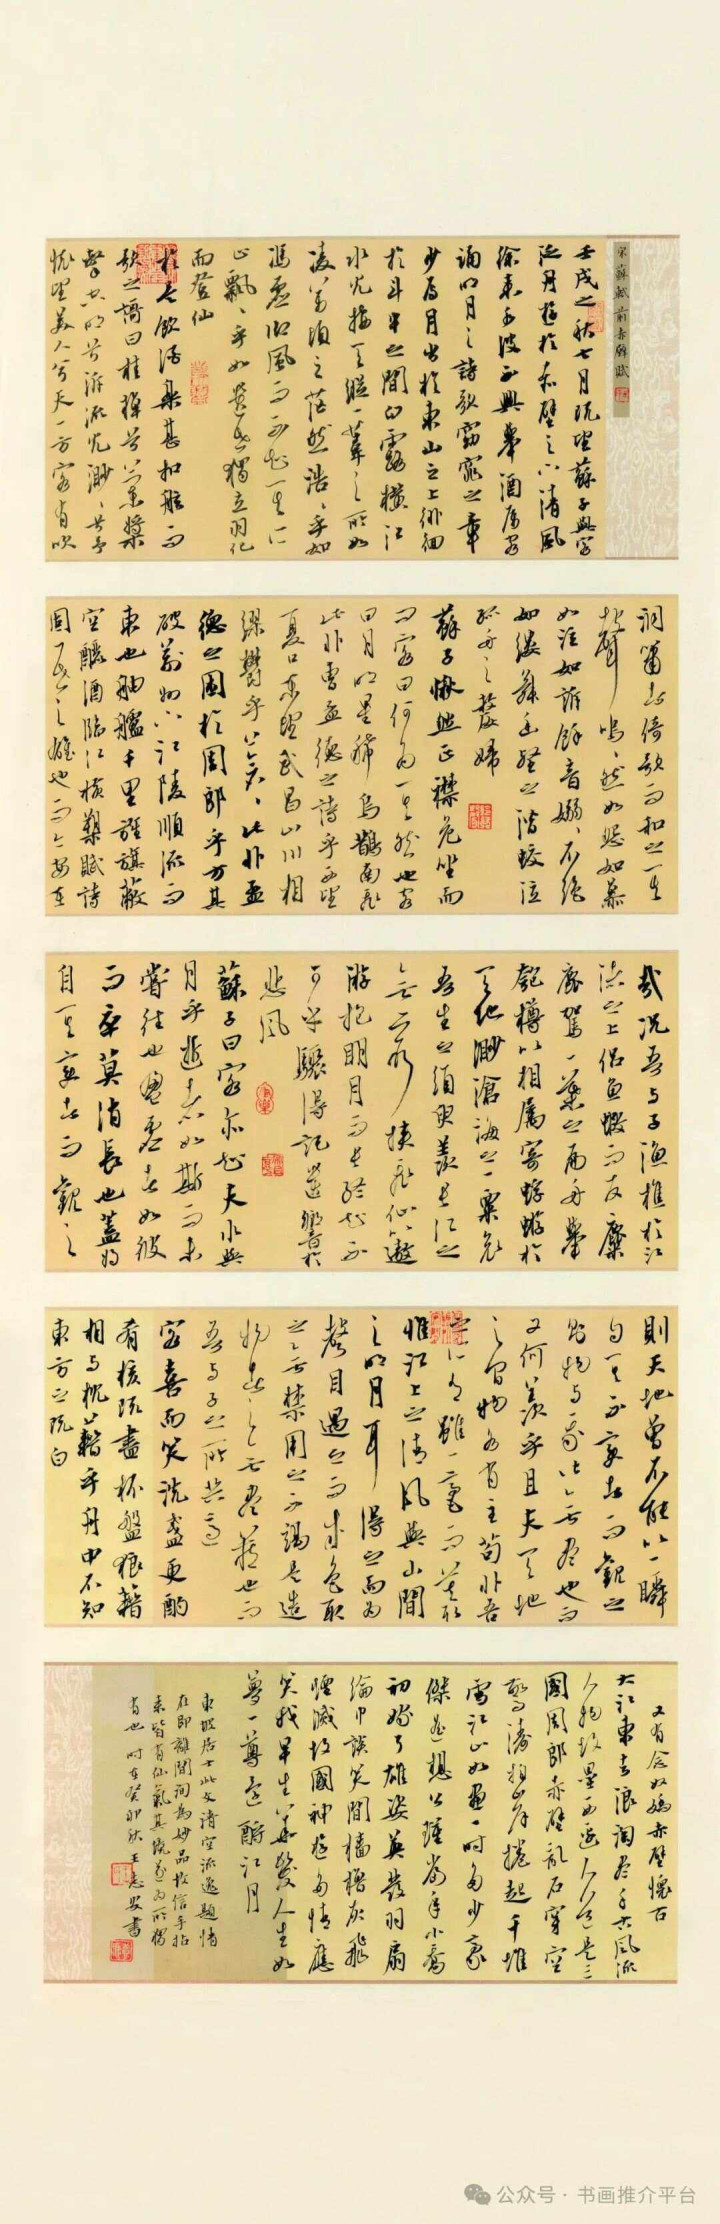 宋蘇軾前赤壁賦
壬戌之秋七月既望蘇子與客
泛舟遊於赤壁之下清風
徐來水波不興舉酒屬客
誦明月之詩歌窈窕之章
少焉月出於東山之上徘徊
於斗牛之間白露橫江
水光接天縱一葦之所如
凌萬頃之茫然浩浩乎如
馮虛御風而不知其所
止飄飄乎如遺世獨立羽化
而登仙
於是飲酒樂甚扣舷而
歌之歌曰桂棹兮蘭槳
擊空明兮泝流光渺渺兮予
懷望美人兮天一方客有吹
洞簫者倚歌而和之其
聲嗚嗚然如怨如慕
如泣如訴餘音嫋嫋不絕
如縷舞幽壑之潛蛟泣
孤舟之嫠婦
蘇子愀然正襟危坐而
問客曰何為其然也客
曰月明星稀烏鵲南飛
此非曹孟德之詩乎西望
夏口東望武昌山川相
繆鬱乎蒼蒼此非孟
德之困於周郎乎方其
破荊州下江陵順流而
東也舳艫千里旌旗蔽
空釃酒臨江橫槊賦詩
固一世之雄也而今安在
哉況吾與子漁樵於江
渚之上侶魚蝦而友麋
鹿駕一葉之扁舟舉
匏樽以相屬寄蜉蝣於
天地渺滄海之一粟哀
吾生之須臾羨長江之
無窮挾飛仙以遨
遊抱明月而長終知不
可乎驟得託遺響於
悲風
蘇子曰客亦知夫水與
月乎逝者如斯而未
嘗往也盈虛者如彼
而卒莫消長也蓋將
自其變者而觀之
則天地曾不能以一瞬
自其不變者而觀之
則物與我皆無盡也而
又何羨乎且夫天地
之間物各有主苟非吾
之所有雖一毫而莫取
惟江上之清風與山間
之明月耳得之而為
聲目遇之而成色取
之無禁用之不竭是造
物者之無盡藏也而
吾與子之所共適
客喜而笑洗盞更酌
肴核既盡杯盤狼籍
相與枕藉乎舟中不知
東方之既白
又有念奴嬌赤壁懷古
大江東去浪淘盡千古風流
人物故壘西邊人道是三
國周郎赤壁亂石穿空
驚濤拍岸捲起千堆
雪江山如畫一時多少豪
傑遙想公瑾當年小喬
初嫁了雄姿英發羽扇
綸巾談笑間檣櫓灰飛
煙滅故國神遊多情應
笑我早生華髮人生如
夢一尊還酹江月
東坡居士此文清空流逸題情
在即離間洵為妙品故信手拈
來皆有仙氣其境為所獨
有也 時在癸卯秋王志安書
公众号·书画推介平台